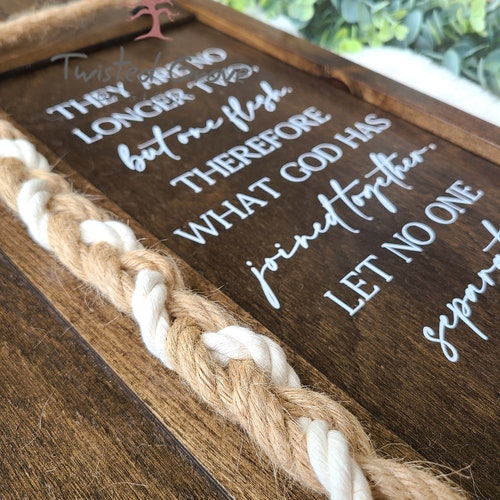 THEY ARE NO
LONGER TWO,
but one flesh.
THEREFORE
WHAT GOD HAS
joined together.
LET NO ONE
separate